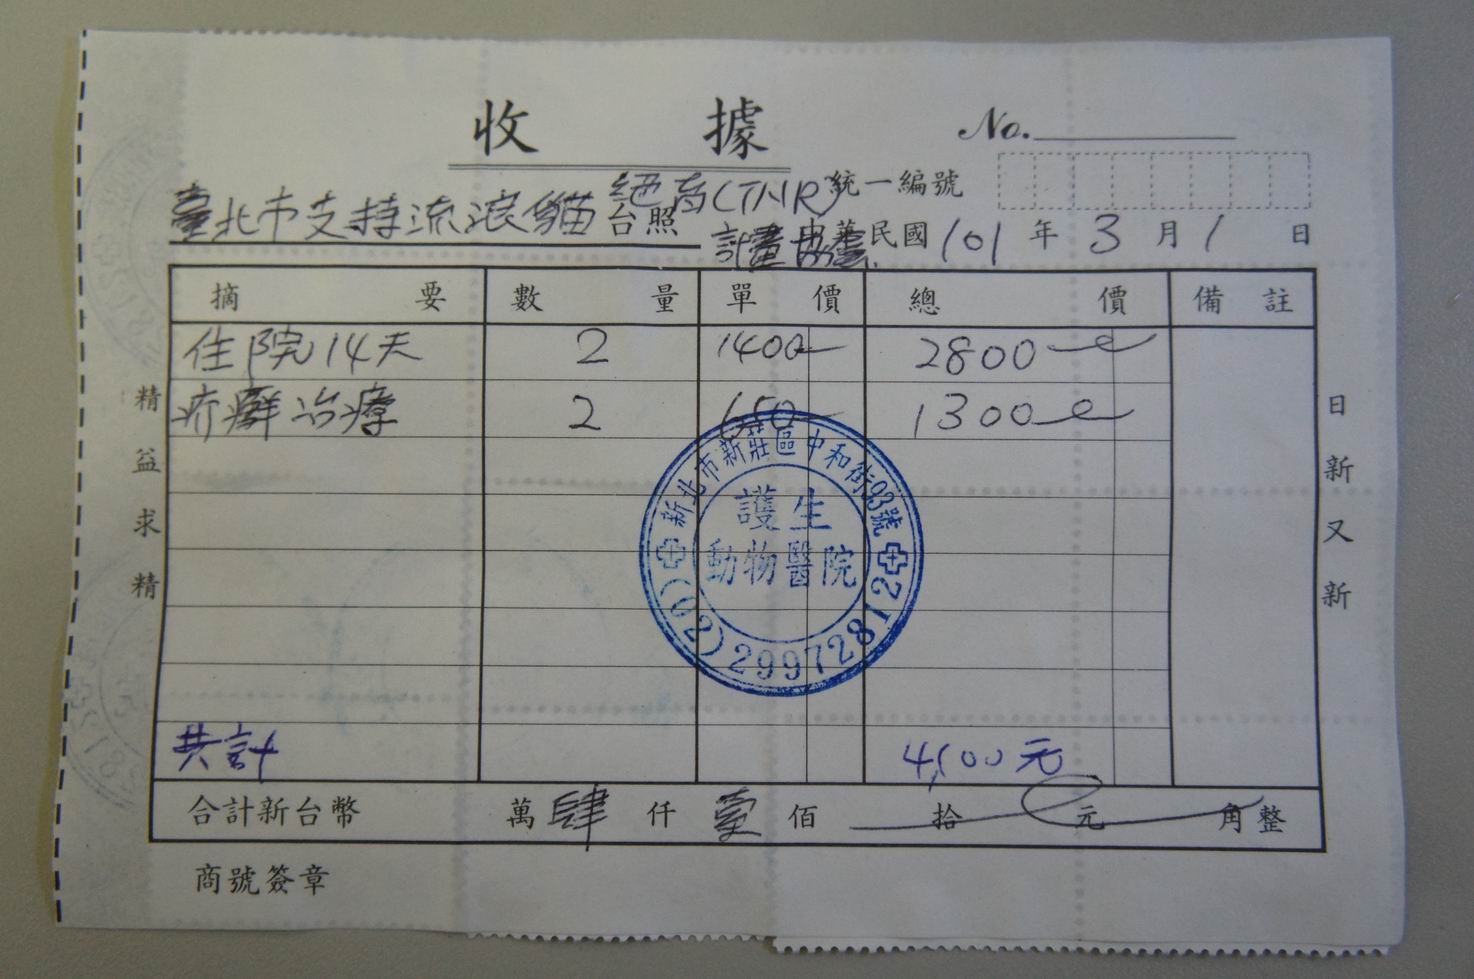 收 據
No.
統一編號
臺北市支持流浪貓絕育(TNR)計畫協會 台照
中華民國101年3月1日
摘要 數量 單價 總價 備註
住院14天 2 1400 2800
疥癬治療 2 650 1300
共計 4,100元
合計新台幣 萬肆仟壹佰 拾 元 角整
商號簽章
精益求精
日新又新
新北市新莊區中和街93號
護生
動物醫院
(02)29972812